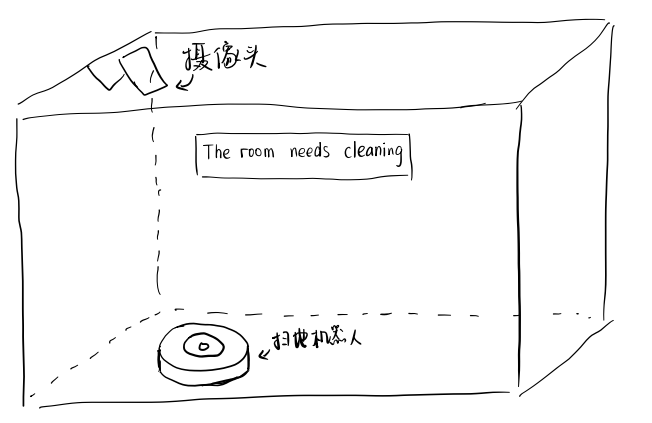 摄像头
The room needs cleaning
扫地机器人